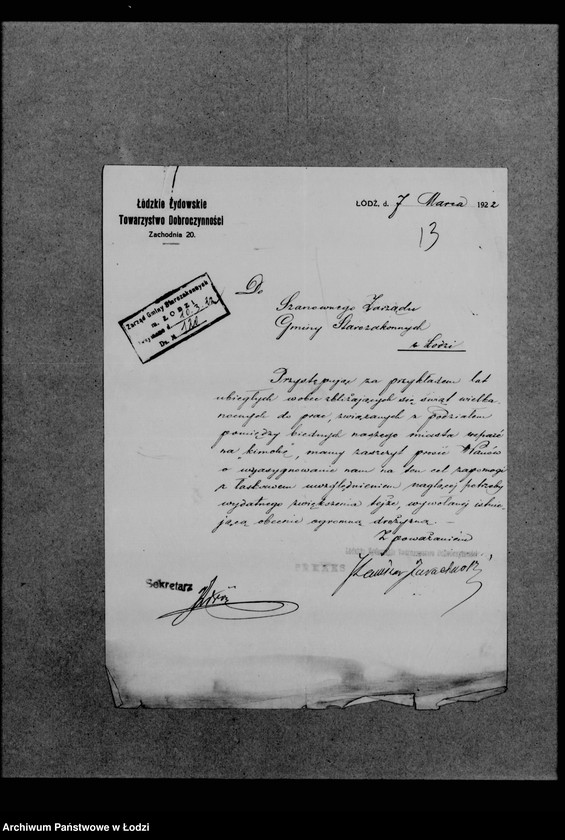 Łódzkie Żydowskie
Towarzystwo Dobroczynności
Zachodnia 20.
ŁÓDŹ, d. 7 Marca 1922
13
Zarząd Gminy Starozakonnych
m. ŁODZI
10.3.22
Dz. N 128
Do
Szanownego Zarządu
Gminy Starozakonnych
w Łodzi
Przystępując za przykładem lat
ubiegłych wobec zbliżających się świąt wielka-
nocnych do prac, związanych z podziałem
pomiędzy biednych naszego miasta wsparć
na kimchę, mamy zaszczyt prosić WPanów
o wyasygnowanie nam na ten cel zapomogi
z łaskawem uwzględnieniem nagłej potrzeby
wydatnego zwiększenia tejże, wywołanej istnie-
jącą obecnie ogromną drożyzną. —
Z poważaniem
Łódzkie Żydowskie Towarzystwo Dobroczynności
PREZES
Sekretarz
Archiwum Państwowe w Łodzi